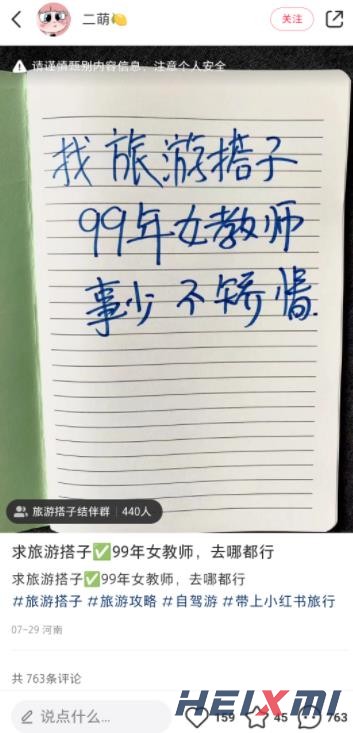 二萌🍋
关注
请谨慎甄别内容信息，注意个人安全
找旅游搭子
99年女教师
事少不矫情.
旅游搭子结伴群 | 440人
求旅游搭子✅99年女教师，去哪都行
求旅游搭子✅99年女教师，去哪都行
#旅游搭子 #旅游攻略 #自驾游 #带上小红书旅行
07-29 河南
共 763条评论
说点什么...
159
45
763
HEIXMI